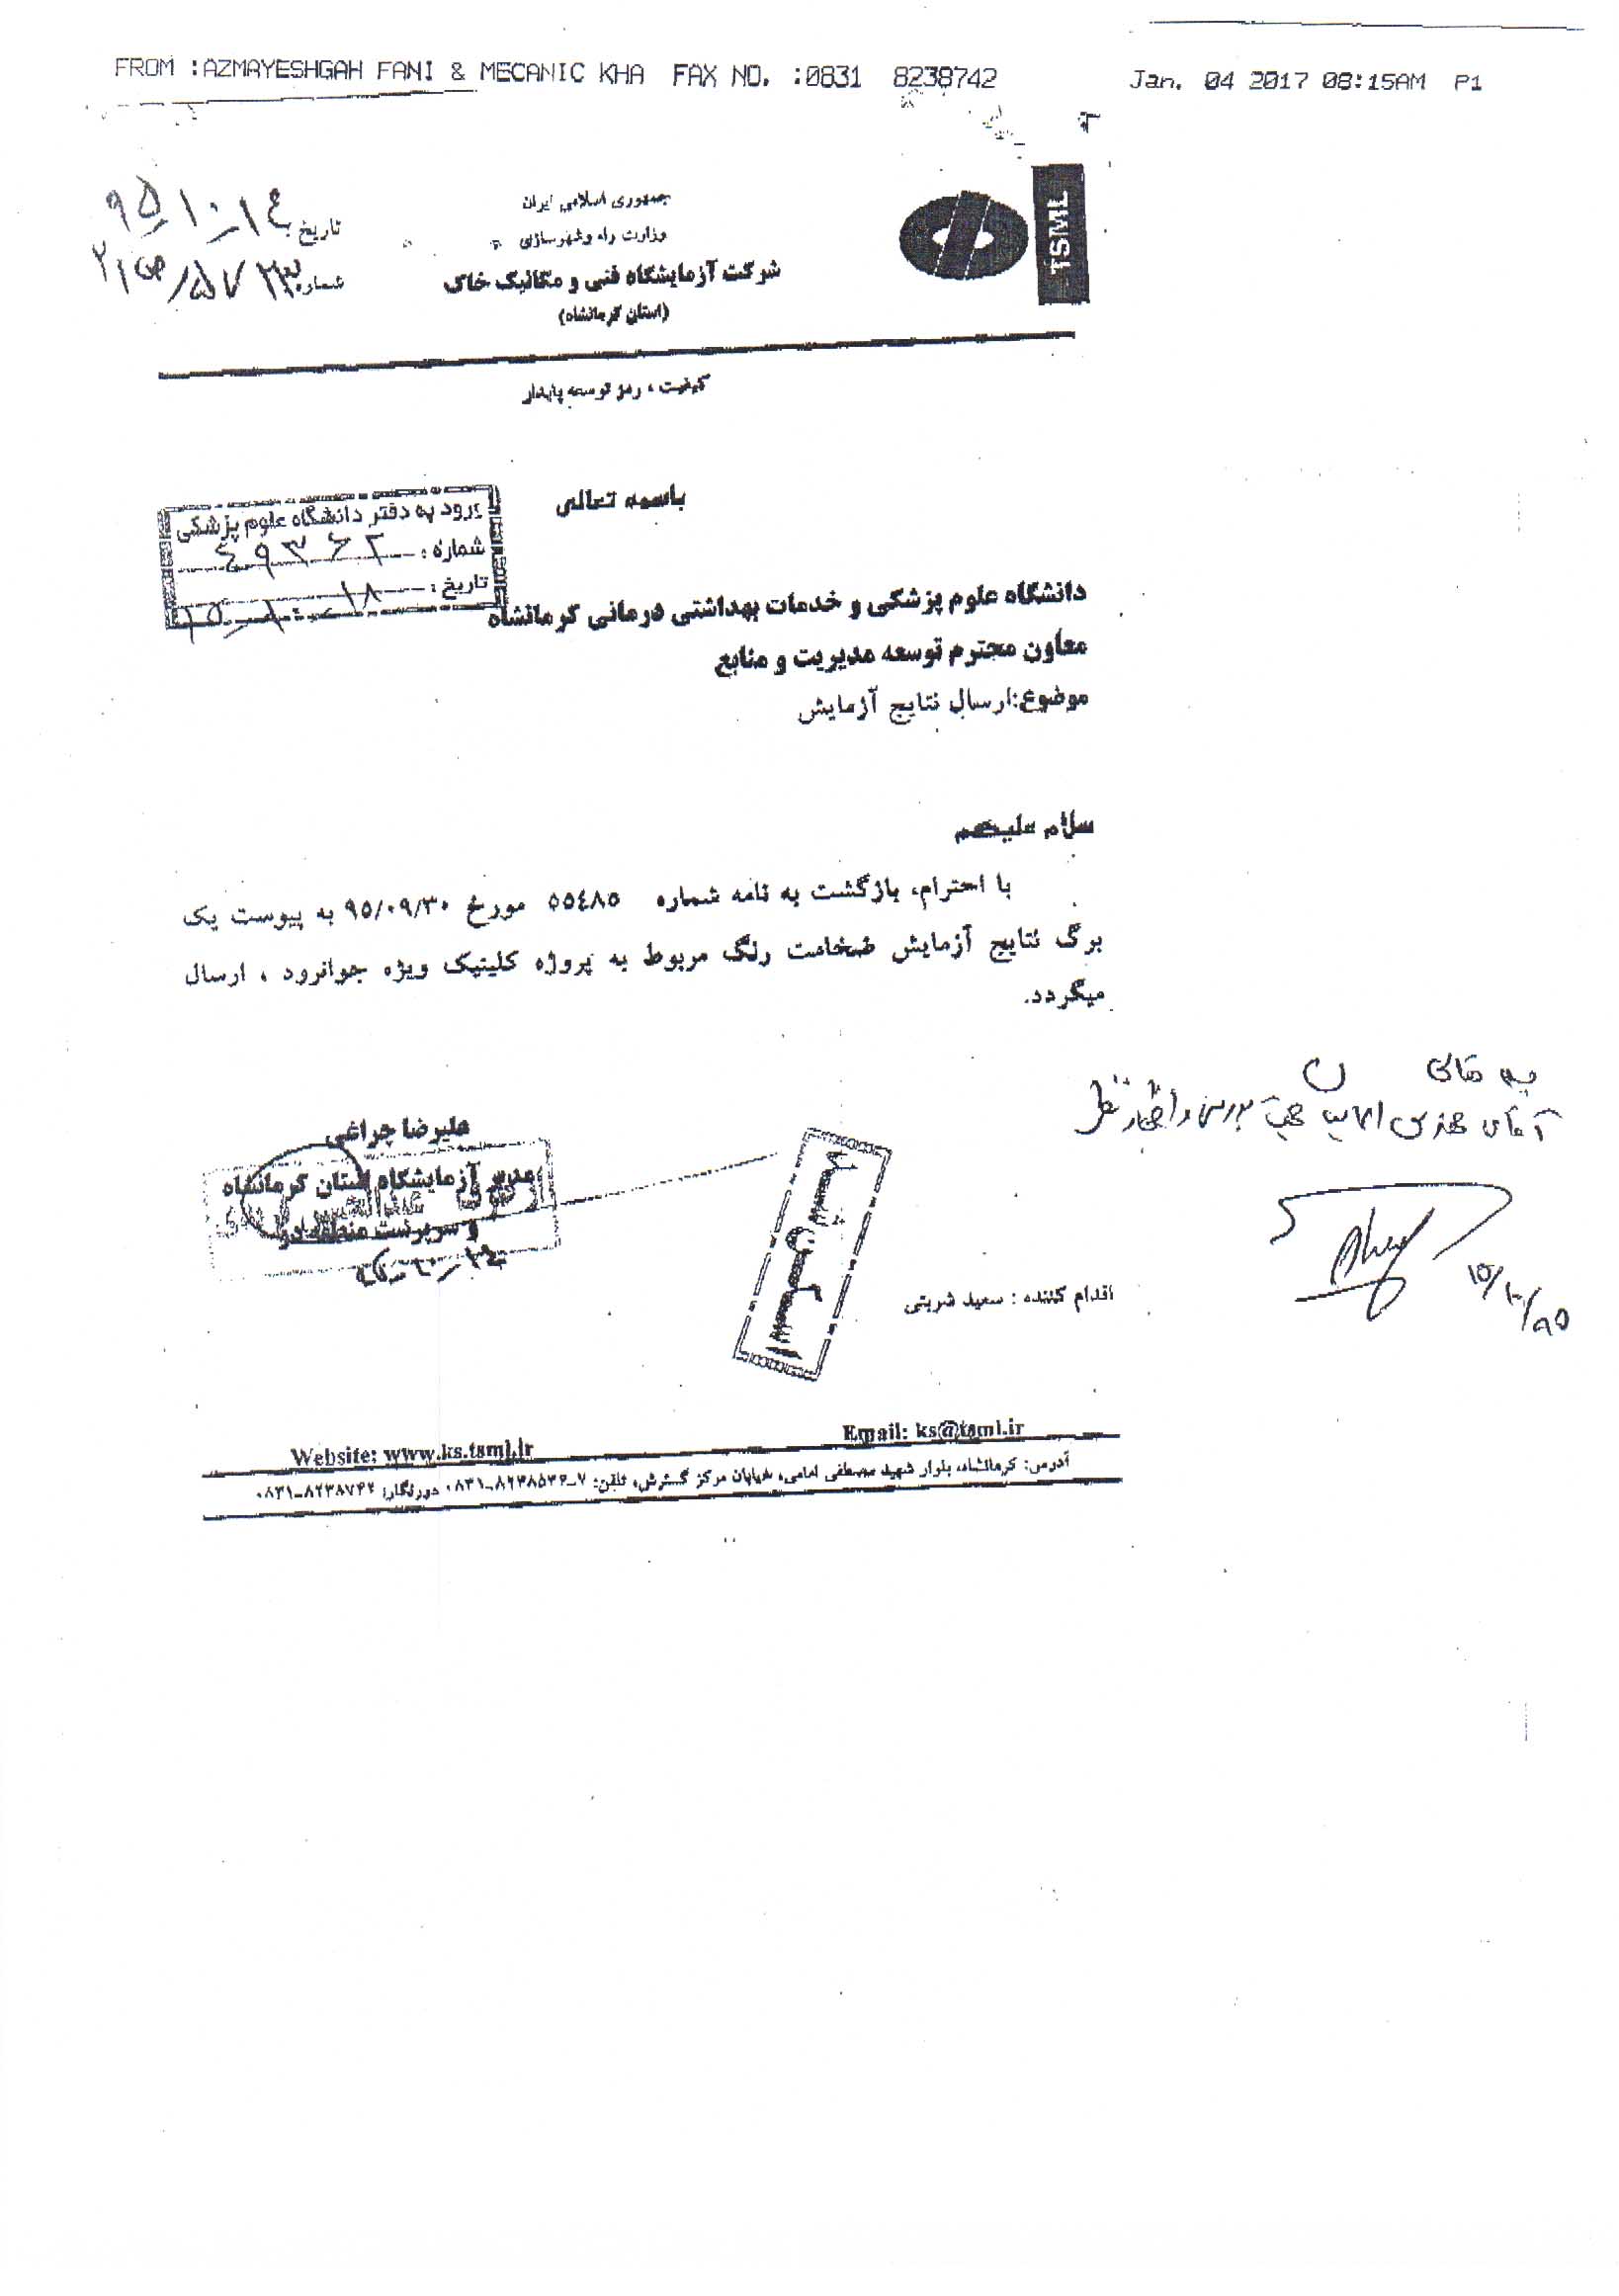 FROM :AZMAYESHGAH FANI & MECANIC KHA FAX NO. :0831 8238742 Jan. 04 2017 08:15AM P1
TSML
جمهوری اسلامی ایران
وزارت راه و شهرسازی
شرکت آزمایشگاه فنی و مکانیک خاک
(استان کرمانشاه)
تاریخ ۹۵/۱۰/۱۴
شماره
کیفیت ، رمز توسعه پایدار
باسمه تعالی
ورود به دفتر دانشگاه علوم پزشکی
شماره :
تاریخ :
دانشگاه علوم پزشکی و خدمات بهداشتی درمانی کرمانشاه
معاون محترم توسعه مدیریت و منابع
موضوع:ارسال نتایج آزمایش
سلام علیکم
با احترام، بازگشت به نامه شماره ۵۵۴۸۵ مورخ ۹۵/۰۹/۳۰ به پیوست یک
برگ نتایج آزمایش ضخامت رنگ مربوط به پروژه کلینیک ویژه جوانرود ، ارسال
میگردد.
علیرضا چراغی
مدیر آزمایشگاه استان کرمانشاه
و سرپرست منطقه دو
اسکن شد
اقدام کننده : سعید شربتی
آقای مهندس جهت بررسی و اظهار نظر
۹۵/۱۰/۱۵
Website: www.ks.tsml.ir Email: ks@tsml.ir
آدرس: کرمانشاه، بلوار شهید مصطفی امامی، خیابان مرکز گسترش، تلفن: ۷-۸۲۳۸۵۳۶-۰۸۳۱ دورنگار: ۸۲۳۸۷۴۲-۰۸۳۱